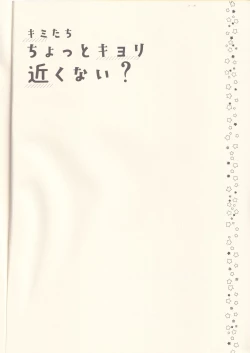 キミたち
ちょっとキョリ
近くない？